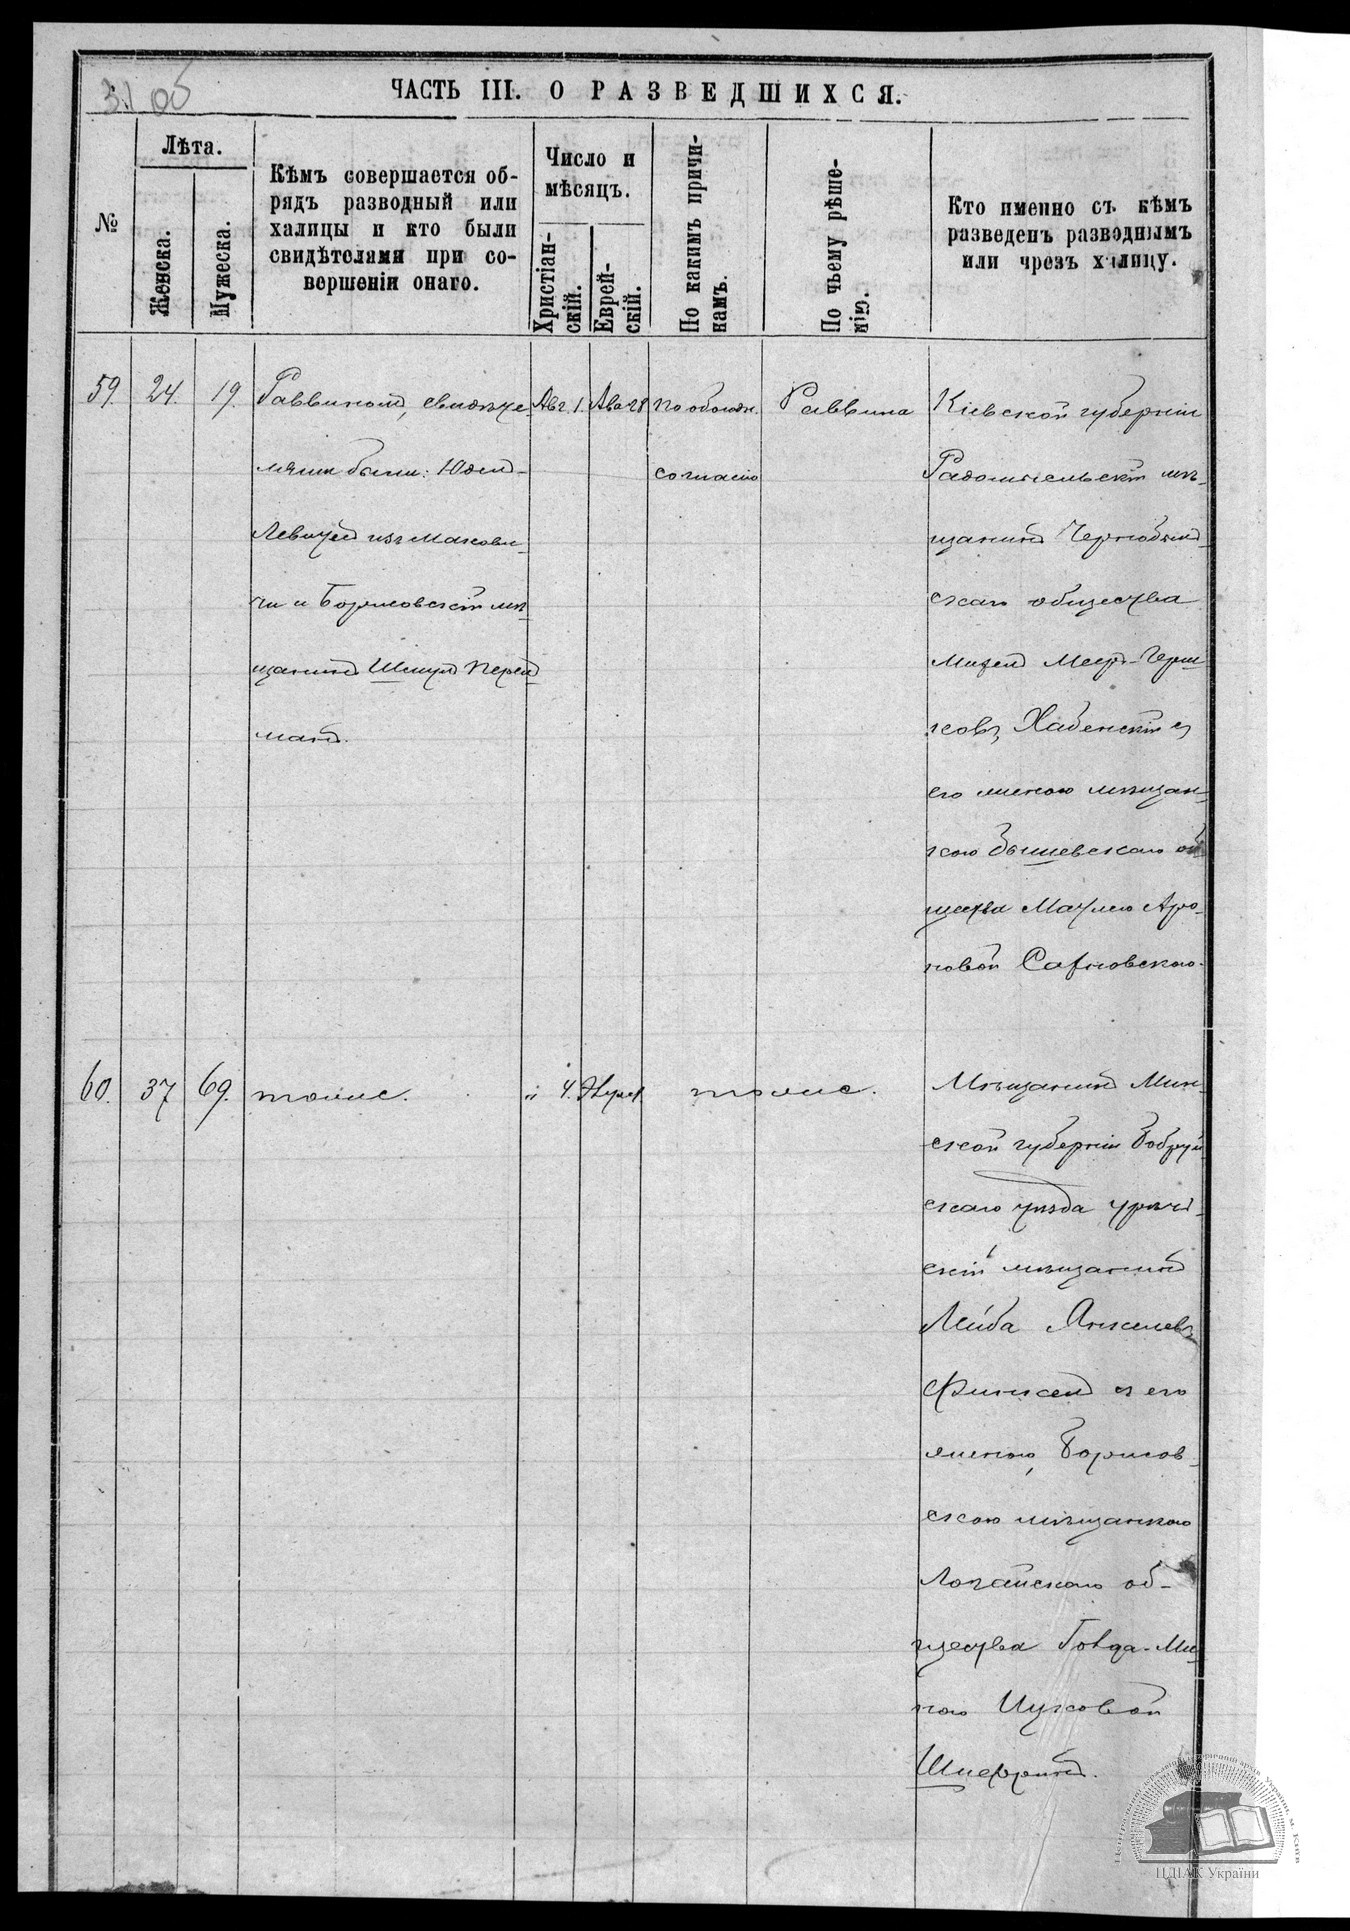 31 об
ЧАСТЬ III. О РАЗВЕДШИХСЯ.
№
Лѣта.
Женска.
Мужеска.
Кѣмъ совершается об-
рядъ разводный или
халицы и кто были
свидѣтелями при со-
вершеніи онаго.
Число и
мѣсяцъ.
Христіан-
скій.
Еврей-
скій.
По какимъ причи-
намъ.
По чьему рѣше-
нію.
Кто именно съ кѣмъ
разведенъ разводнымъ
или чрезъ халицу.
59.
24.
19.
Раввиномъ, свидѣте-
лями были: Юдел-
Левичъ изъ
чи и Борисовскій мѣ-
щанинъ Шмуел Перел-
манъ.
Авг. 1.
Ава 28
по обоюдн.
согласію
Раввина
Кіевской губерніи
Радомысльскій мѣ-
щанинъ Чернобыл-
скаго общества
Меер-Герш-
ковъ Хабенскій съ
его женою мѣщан-
кою скаго об
щества Аро-
новой
60.
37
69.
тоже.
" 4.
тоже.
Мѣщанинъ Мин-
ской губерніи Бобруй
скаго уѣзда
скій мѣщанинъ
Лейба Янкелевъ
Финкел съ его
женою, Борисов-
скою мѣщанкою
Логойскаго об-
щества Ми-
ною Ицковой
ЦДІАК України